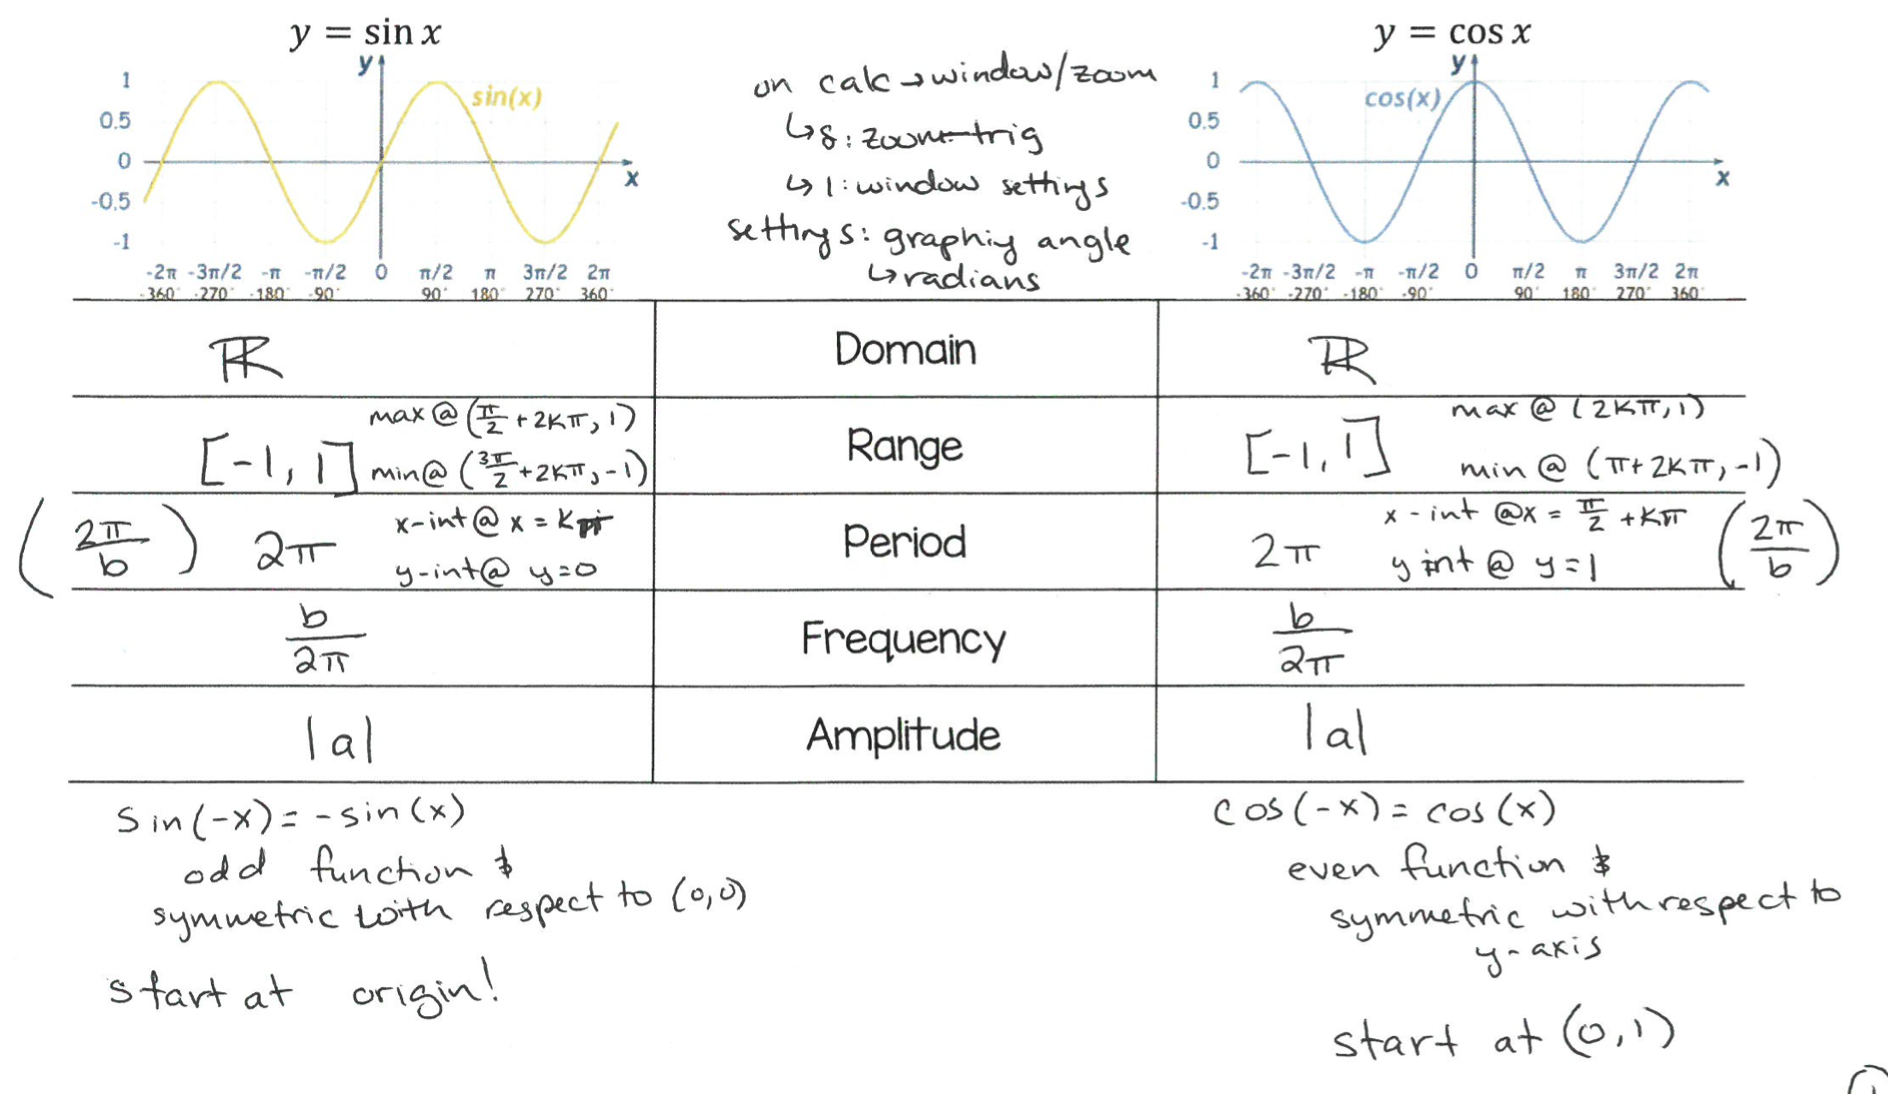 y = sin x
y
1
0.5
0
-0.5
-1
sin(x)
x
-2π -3π/2 -π -π/2 0 π/2 π 3π/2 2π
-360° -270° -180° -90° 90° 180° 270° 360°
on calc → window/zoom
↳ 8: zoom-trig
↳ 1: window settings
settings: graphing angle
↳ radians
y = cos x
y
1
0.5
0
-0.5
-1
cos(x)
x
-2π -3π/2 -π -π/2 0 π/2 π 3π/2 2π
-360° -270° -180° -90° 90° 180° 270° 360°
ℝ
Domain
ℝ
[-1, 1]
max @ (π/2 + 2kπ, 1)
min @ (3π/2 + 2kπ, -1)
Range
[-1, 1]
max @ (2kπ, 1)
min @ (π + 2kπ, -1)
(2π/b) 2π
x-int @ x = kπ
y-int @ y=0
Period
2π
x-int @ x = π/2 + kπ
y int @ y = 1
(2π/b)
b/2π
Frequency
b/2π
|a|
Amplitude
|a|
sin(-x) = -sin(x)
odd function &
symmetric with respect to (0,0)
start at origin!
cos(-x) = cos(x)
even function &
symmetric with respect to
y-axis
start at (0,1)